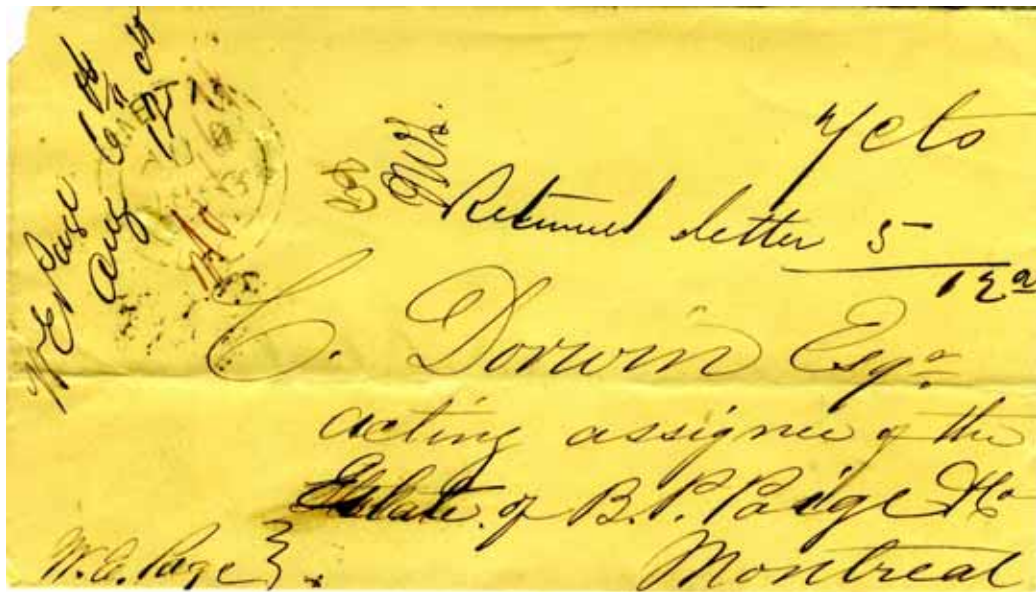 W E Page
Aug
7 cts
Returned letter 5
12
C. Dorwin Esqr
acting assignee of the
Estate of B. P. Paige & Co
Montreal
W. E. Page